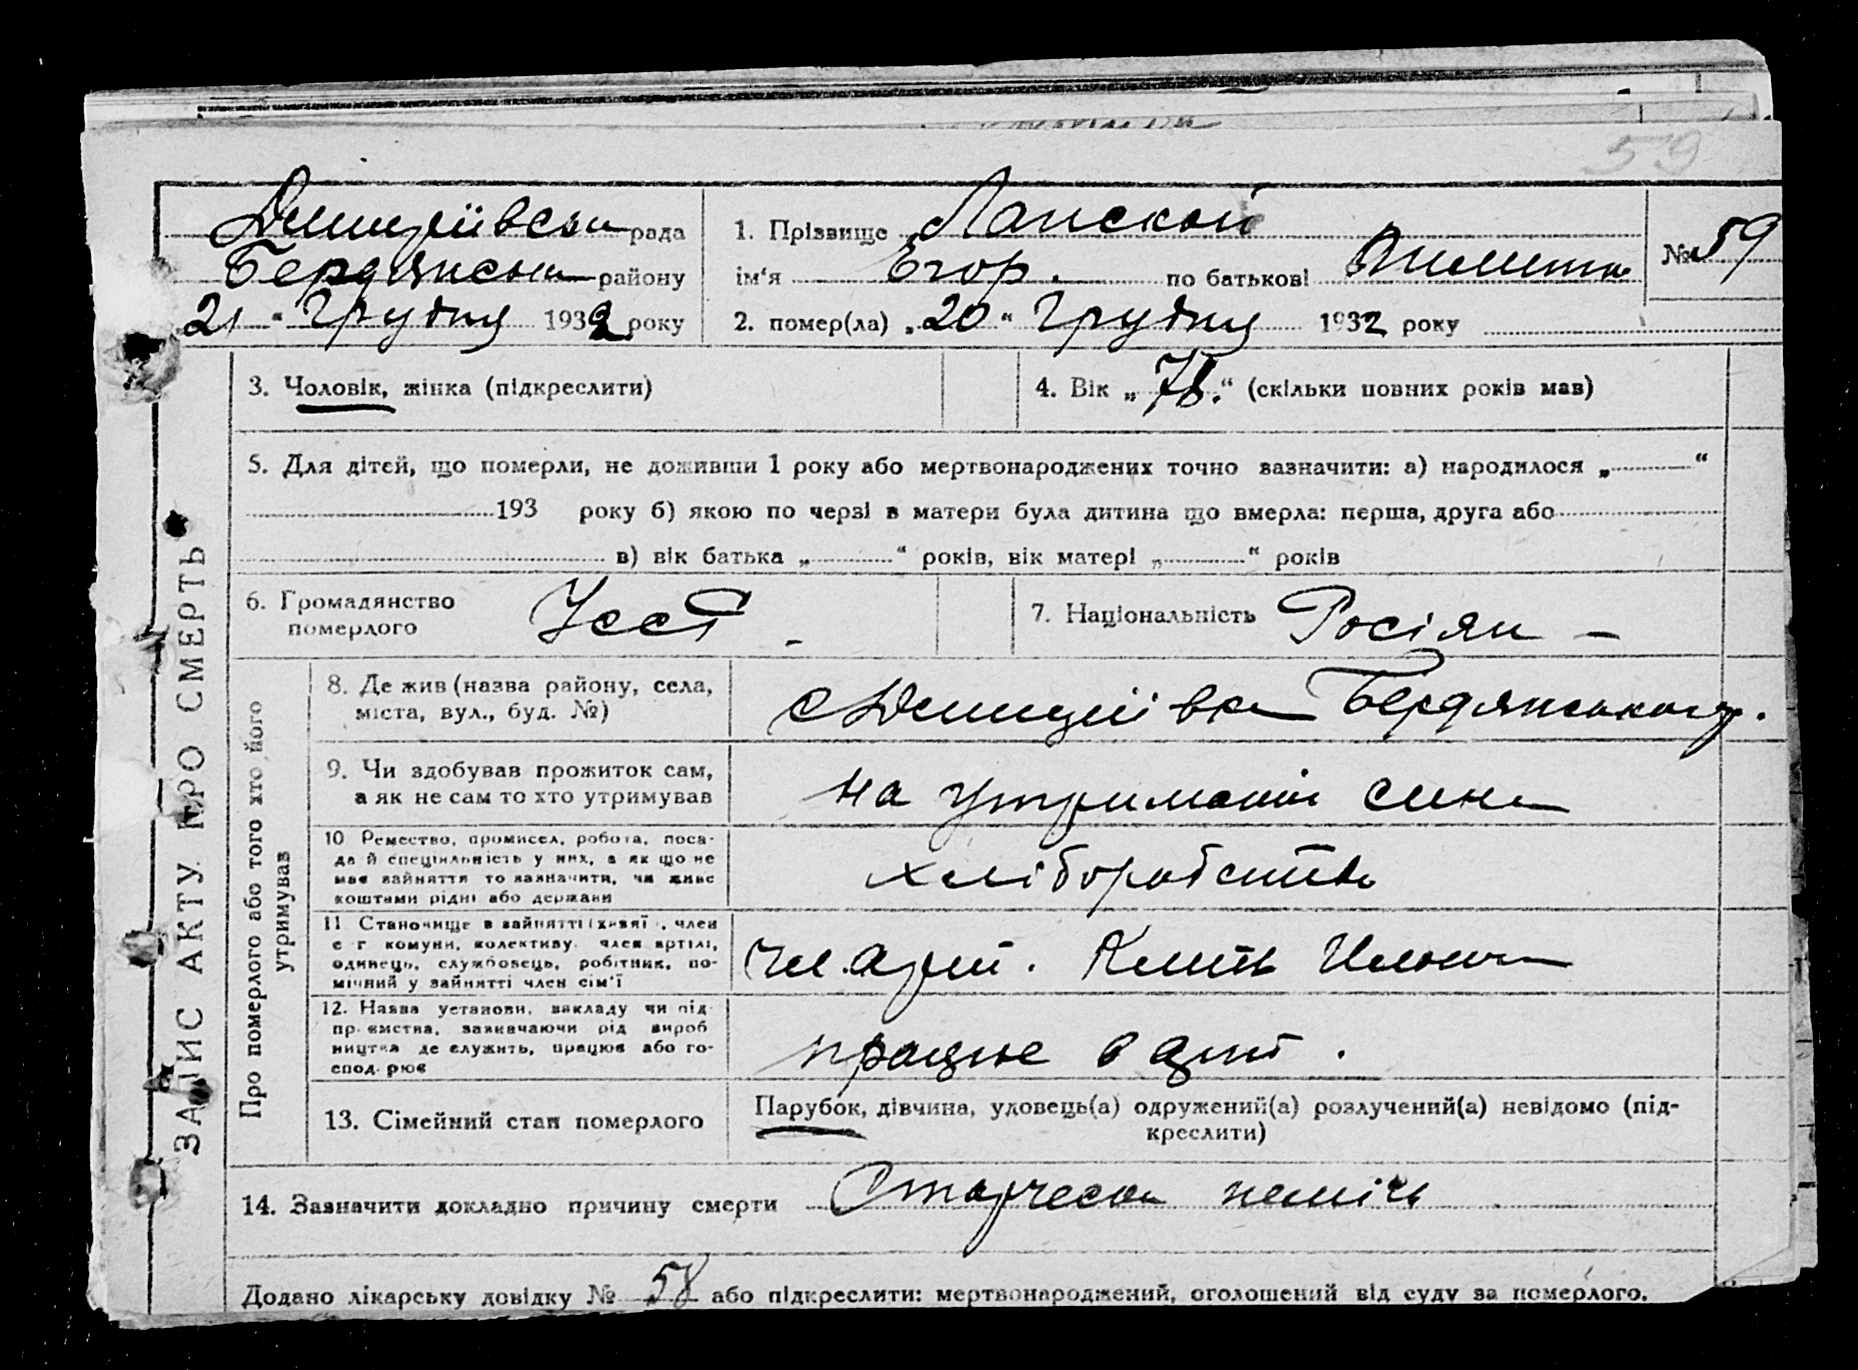 59
Демидівська рада
Бердянська району
„21“ Грудня 1932 року
1. Прізвище Лапской
ім‘я Егор. по батькові
№ 59
2. помер(ла) „20“ Грудня 1932 року
ЗАПИС АКТУ ПРО СМЕРТЬ
3. Чоловік, жінка (підкреслити)
4. Вік „78.“ (скільки повних років мав)
5. Для дітей, що померли, не доживши 1 року або мертвонароджених точно зазначити: а) народилося „ “
193 року б) якою по черзі в матери була дитина що вмерла: перша, друга або
в) вік батька „ “ років, вік матері „ “ років
6. Громадянство
померлого
Усср -
7. Національність Росіян -
Про померлого або того хто його
утримував
8. Де жив (назва району, села,
міста, вул., буд. №)
с Бердянського р.
9. Чи здобував прожиток сам,
а як не сам то хто утримував
на утриманні сина
10 Ремество, промисел, робота, поса-
да й спеціяльність у них, а як що не
має зайняття то зазначити, чи живе
коштами рідні або держави
хліборобство
11 Становище в зайнятті (хазяї , член
с г комуни, колективу. член артілі,
одинець, службовець, робітник, по-
мічний у зайнятті член сім'ї
чл. артіл.
12. Назва установи, закладу чи під-
пр·ємства, зазначаючи рід вироб
ництва де служить, працює або го-
спод·рює
працює в арт.
13. Сімейний стан померлого
Парубок, дівчина, удовець(а) одружений(а) розлучений(а) невідомо (під-
креслити)
14. Зазначити докладно причину смерти Старческа неміч
Додано лікарську довідку № 58 або підкреслити: мертвонароджений, оголошений від суду за померлого.